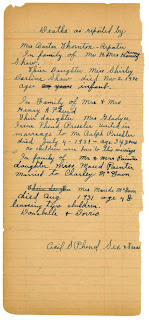 Deaths as reported by:
Mrs Carter Thornton - Reporter
In family of Mr & Mrs Harvey
Shaw.
Their Daughter Mrs Shirley
Darline Shaw died Nov 2. 1930
age infant.
In Family of Mr & Mrs
Henry A Phend
Their daughter Mrs Gladyce
Irene Phend Presler united in
marriage to Mr Ralph Presler
died July 4 - 1931 - age 24 years
no children were born to this marriage
In family of Mr & Mrs
daughter Miss Maud Painter
married to Charley McGown
Mrs Maude McGown
died Aug 1931 age 48
leaving two children
Donabelle & Ferris
Adil S Phend, Sec & Treas